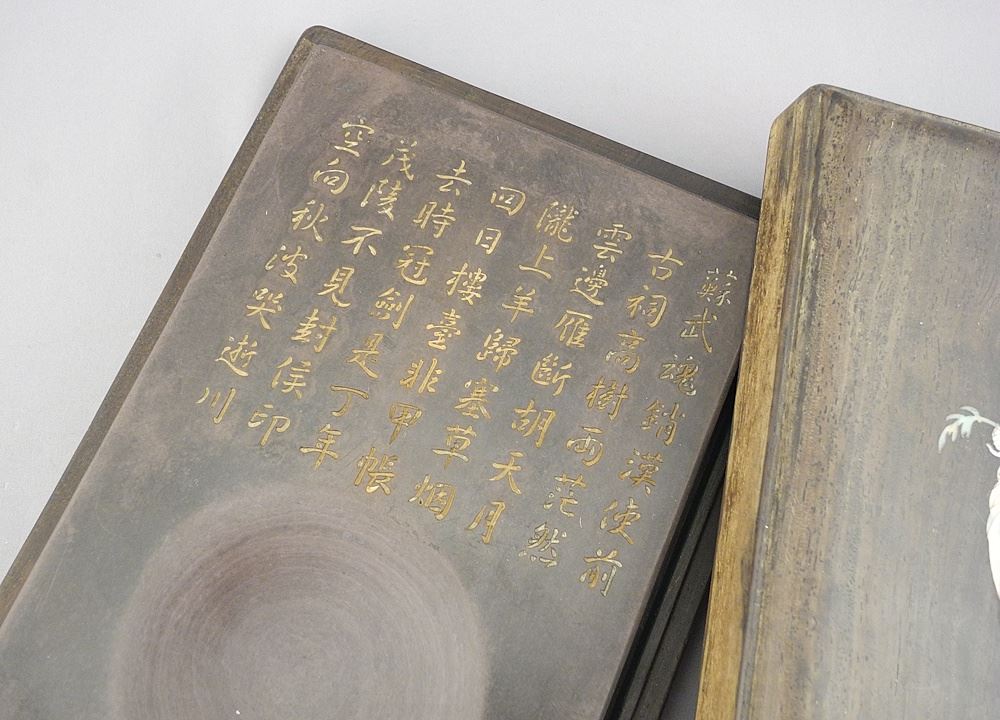 蘇武魂銷漢使前
古祠高樹兩茫然
雲邊雁斷胡天月
隴上羊歸塞草烟
回日樓臺非甲帳
去時冠劍是丁年
茂陵不見封侯印
空向秋波哭逝川